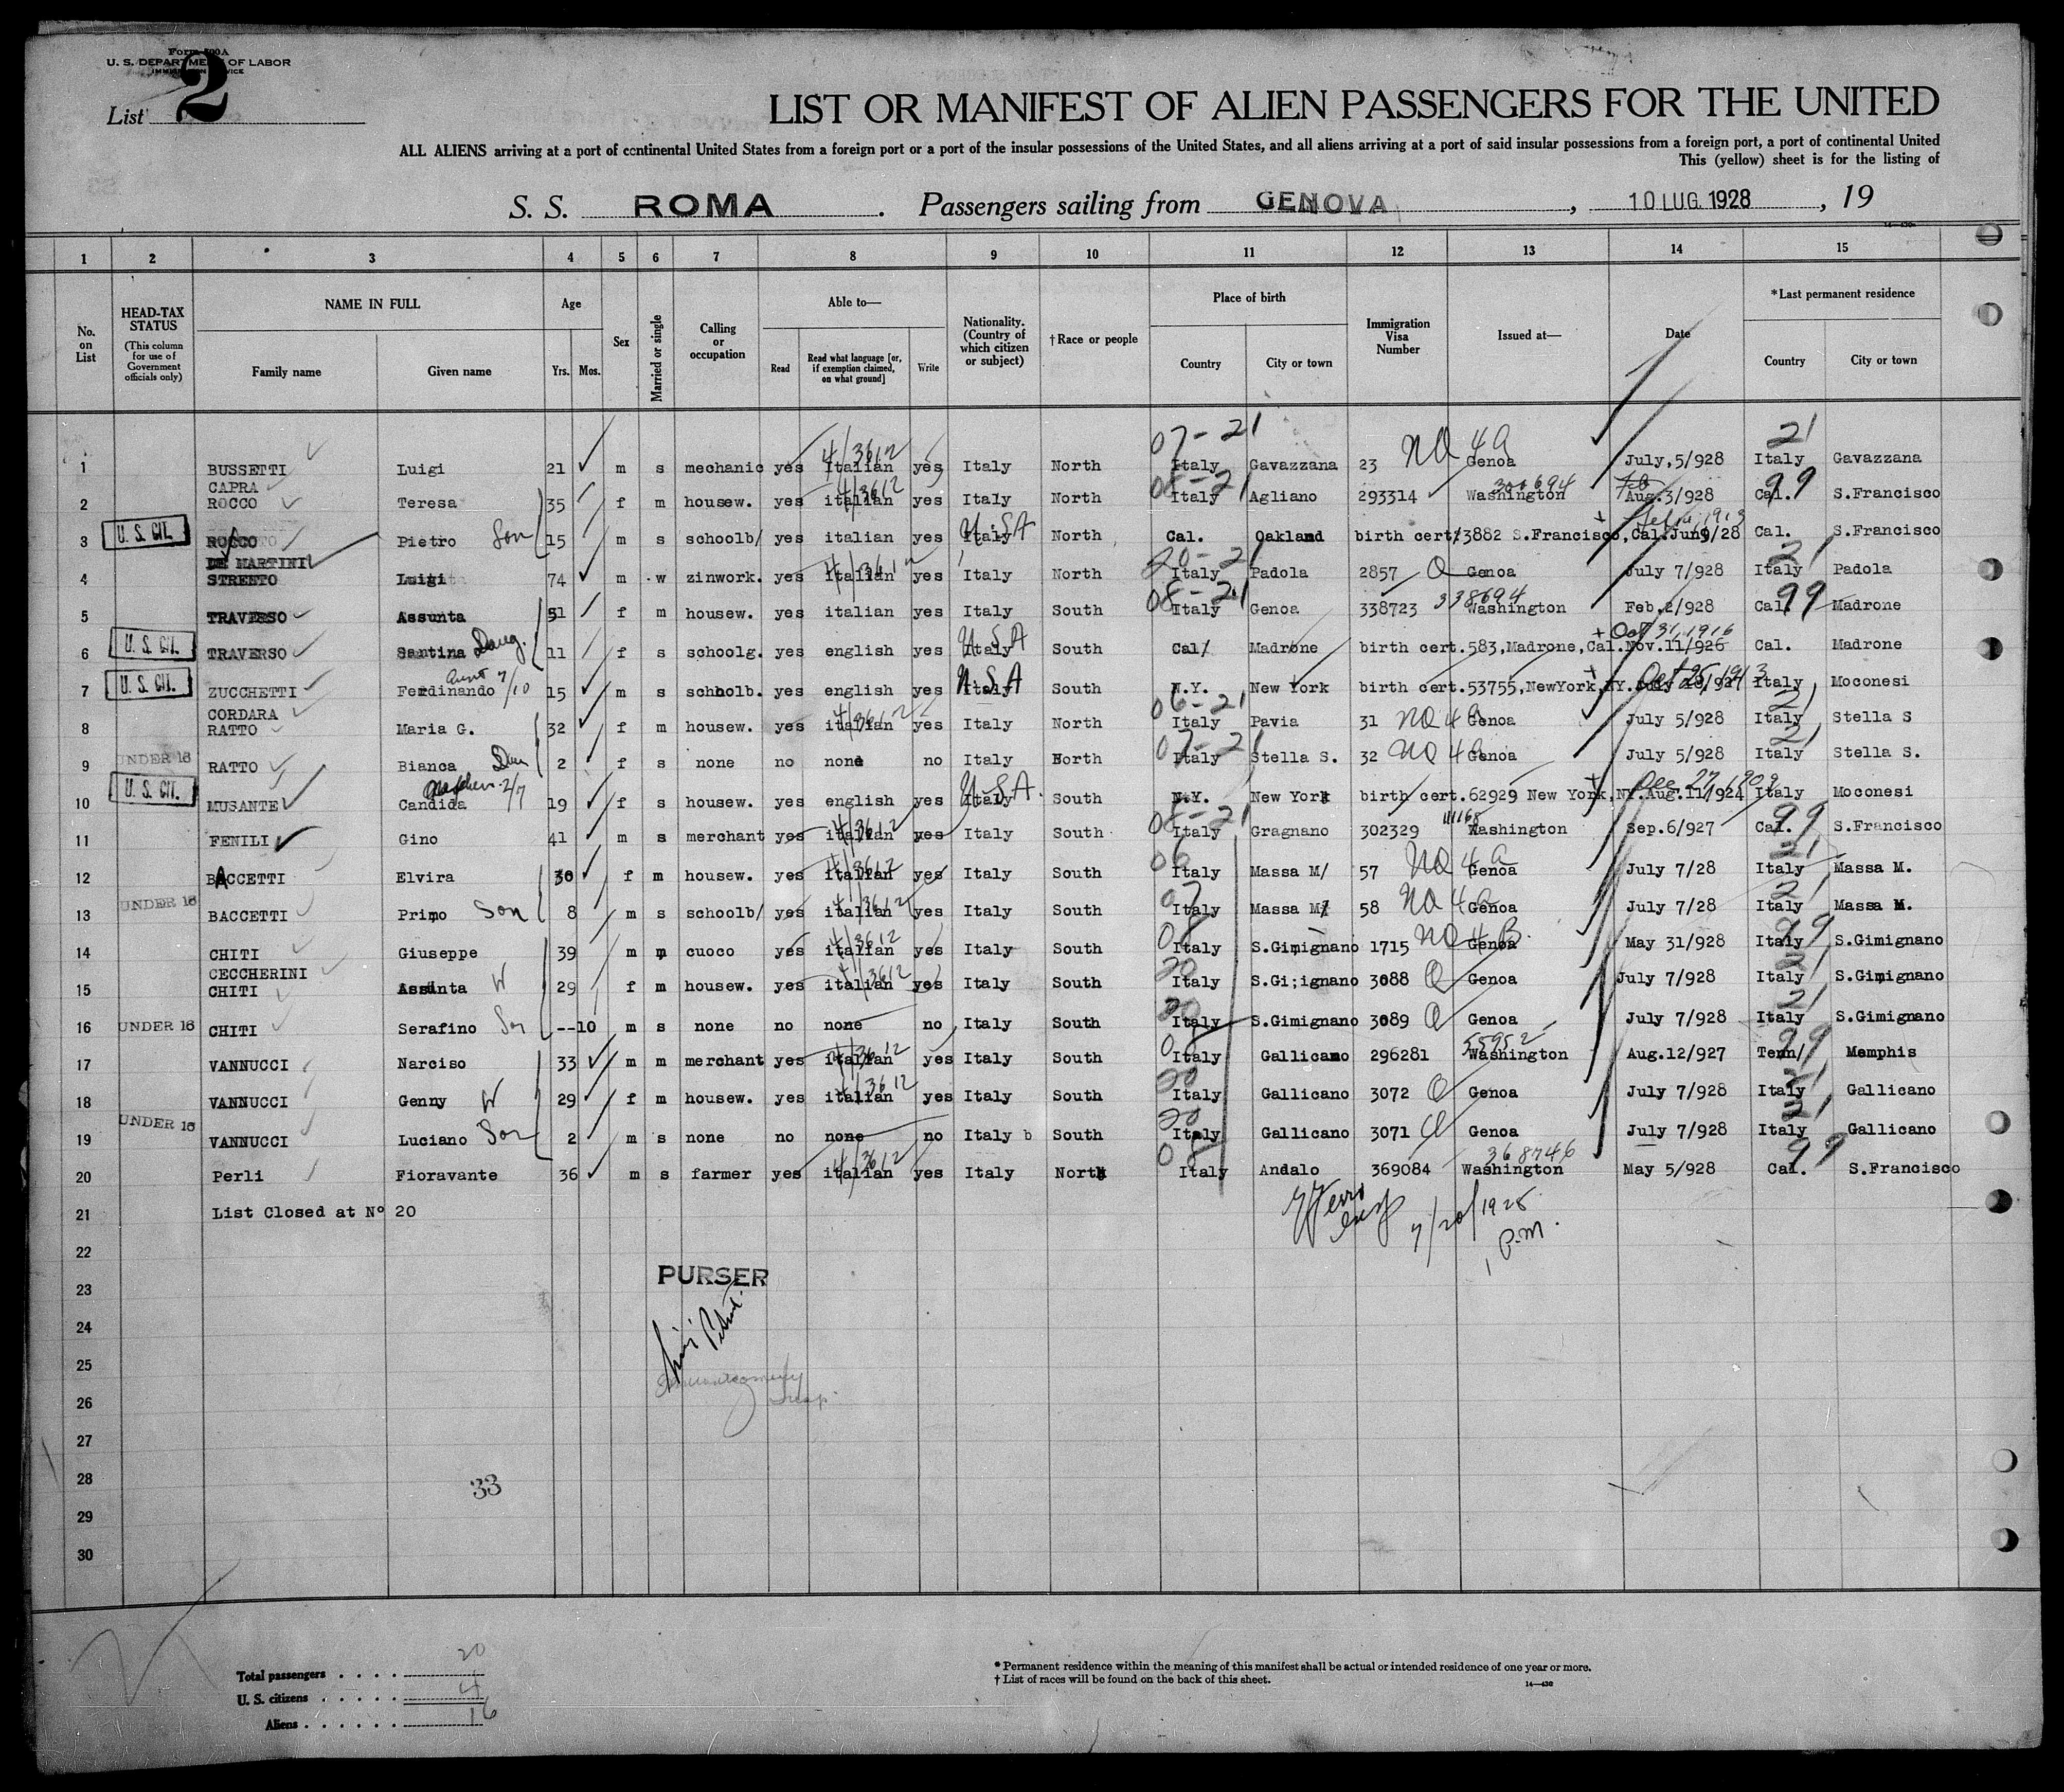 Form 500A
U. S. DEPARTMENT OF LABOR
IMMIGRATION SERVICE
List 2
LIST OR MANIFEST OF ALIEN PASSENGERS FOR THE UNITED
ALL ALIENS arriving at a port of continental United States from a foreign port or a port of the insular possessions of the United States, and all aliens arriving at a port of said insular possessions from a foreign port, a port of continental United
This (yellow) sheet is for the listing of
S. S. ROMA . Passengers sailing from GENOVA , 10 LUG. 1928 , 19
1 2 3 4 5 6 7 8 9 10 11 12 13 14 15
No. on List
HEAD-TAX STATUS (This column for use of Government officials only)
NAME IN FULL
Family name Given name
Age
Yrs. Mos.
Sex
Married or single
Calling or occupation
Able to—
Read Read what language [or, if exemption claimed, on what ground] Write
Nationality. (Country of which citizen or subject)
†Race or people
Place of birth
Country City or town
Immigration Visa Number
Issued at—
Date
*Last permanent residence
Country City or town
07-21 NQ 4a 21
1 BUSSETTI Luigi 21 m s mechanic yes italian yes Italy North Italy Gavazzana 23 Genoa July,5/928 Italy Gavazzana
CAPRA
2 ROCCO Teresa 35 f m housew. yes italian yes Italy North Italy Agliano 293314 Washington Aug.3/928 Cal. S.Francisco
U. S. CIT.
3 ROCCO Pietro Son 15 m s schoolb/ yes italian yes Italy U.S.A North Cal. Oakland birth cert/3882 S.Francisco,Cal.Jun9/28 Cal. S.Francisco
DE MARTINI
4 STRETTO Luigi 74 m w zinwork. yes italian yes Italy North Italy Padola 2857 Q Genoa July 7/928 Italy Padola
5 TRAVERSO Assunta 51 f m housew. yes italian yes Italy South Italy Genoa 338723 338694 Washington Feb.2/928 Cal/ 99 Madrone
U. S. CIT.
6 TRAVERSO Santina Daug. 11 f s schoolg. yes english yes Italy U.S.A South Cal/ Madrone birth cert.583,Madrone,Cal.Nov.11/926 Oct 31, 1916 Cal. Madrone
U. S. CIT.
7 ZUCCHETTI Ferdinando 15 m s schoolb. yes english yes Italy U.S.A South N.Y. New York birth cert.53755,NewYork,NY. Italy Moconesi
CORDARA
8 RATTO Maria G. 32 f m housew. yes italian yes Italy North Italy Pavia 31 NQ 4a Genoa July 5/928 Italy Stella S
UNDER 16
9 RATTO Bianca 2 f s none no none no Italy North Italy Stella S. 32 NQ 4a Genoa July 5/928 Italy Stella S.
U. S. CIT.
10 MUSANTE Candida 19 f s housew. yes english yes Italy U.S.A. South N.Y. New York birth cert.62929 New York,NY.Aug.11/924 Dec 27, 1909 Italy Moconesi
11 FENILI Gino 41 m s merchant yes italian yes Italy South Italy Gragnano 302329 Washington Sep.6/927 Cal. 99 S.Francisco
12 BACCETTI Elvira 30 f m housew. yes italian yes Italy South Italy Massa M/ 57 NQ 4a Genoa July 7/28 Italy Massa M.
UNDER 16
13 BACCETTI Primo Son 8 m s schoolb/ yes italian yes Italy South Italy Massa M/ 58 NQ 4a Genoa July 7/28 Italy Massa M.
14 CHITI Giuseppe 39 m m cuoco yes italian yes Italy South Italy S.Gimignano 1715 NQ 4B. Genoa May 31/928 Italy S.Gimignano
CECCHERINI
15 CHITI Assunta W 29 f m housew. yes italian yes Italy South Italy S.Gi;ignano 3088 Q Genoa July 7/928 Italy S.Gimignano
16 UNDER 16 CHITI Serafino --10 m s none no none no Italy South Italy S.Gimignano 3089 Q Genoa July 7/928 Italy S.Gimignano
17 VANNUCCI Narciso 33 m m merchant yes italian yes Italy South Italy Gallicano 296281 Washington Aug.12/927 Tenn/ 99 Memphis
18 VANNUCCI Genny W 29 f m housew. yes italian yes Italy South Italy Gallicano 3072 Q Genoa July 7/928 Italy Gallicano
UNDER 16
19 VANNUCCI Luciano Son 2 m s none no none no Italy b South Italy Gallicano 3071 Q Genoa July 7/928 Italy Gallicano
20 Perli Fioravante 36 m s farmer yes italian yes Italy North Italy Andalo 369084 368746 Washington May 5/928 Cal. 99 S.Francisco
21 List Closed at Nº 20
7/20/1928
1 P.M.
22
PURSER
23
24
25
26
27
28
33
29
30
Total passengers . . . . 20
U. S. citizens . . . . . 4
Aliens . . . . . . 16
* Permanent residence within the meaning of this manifest shall be actual or intended residence of one year or more.
† List of races will be found on the back of this sheet.
14—430